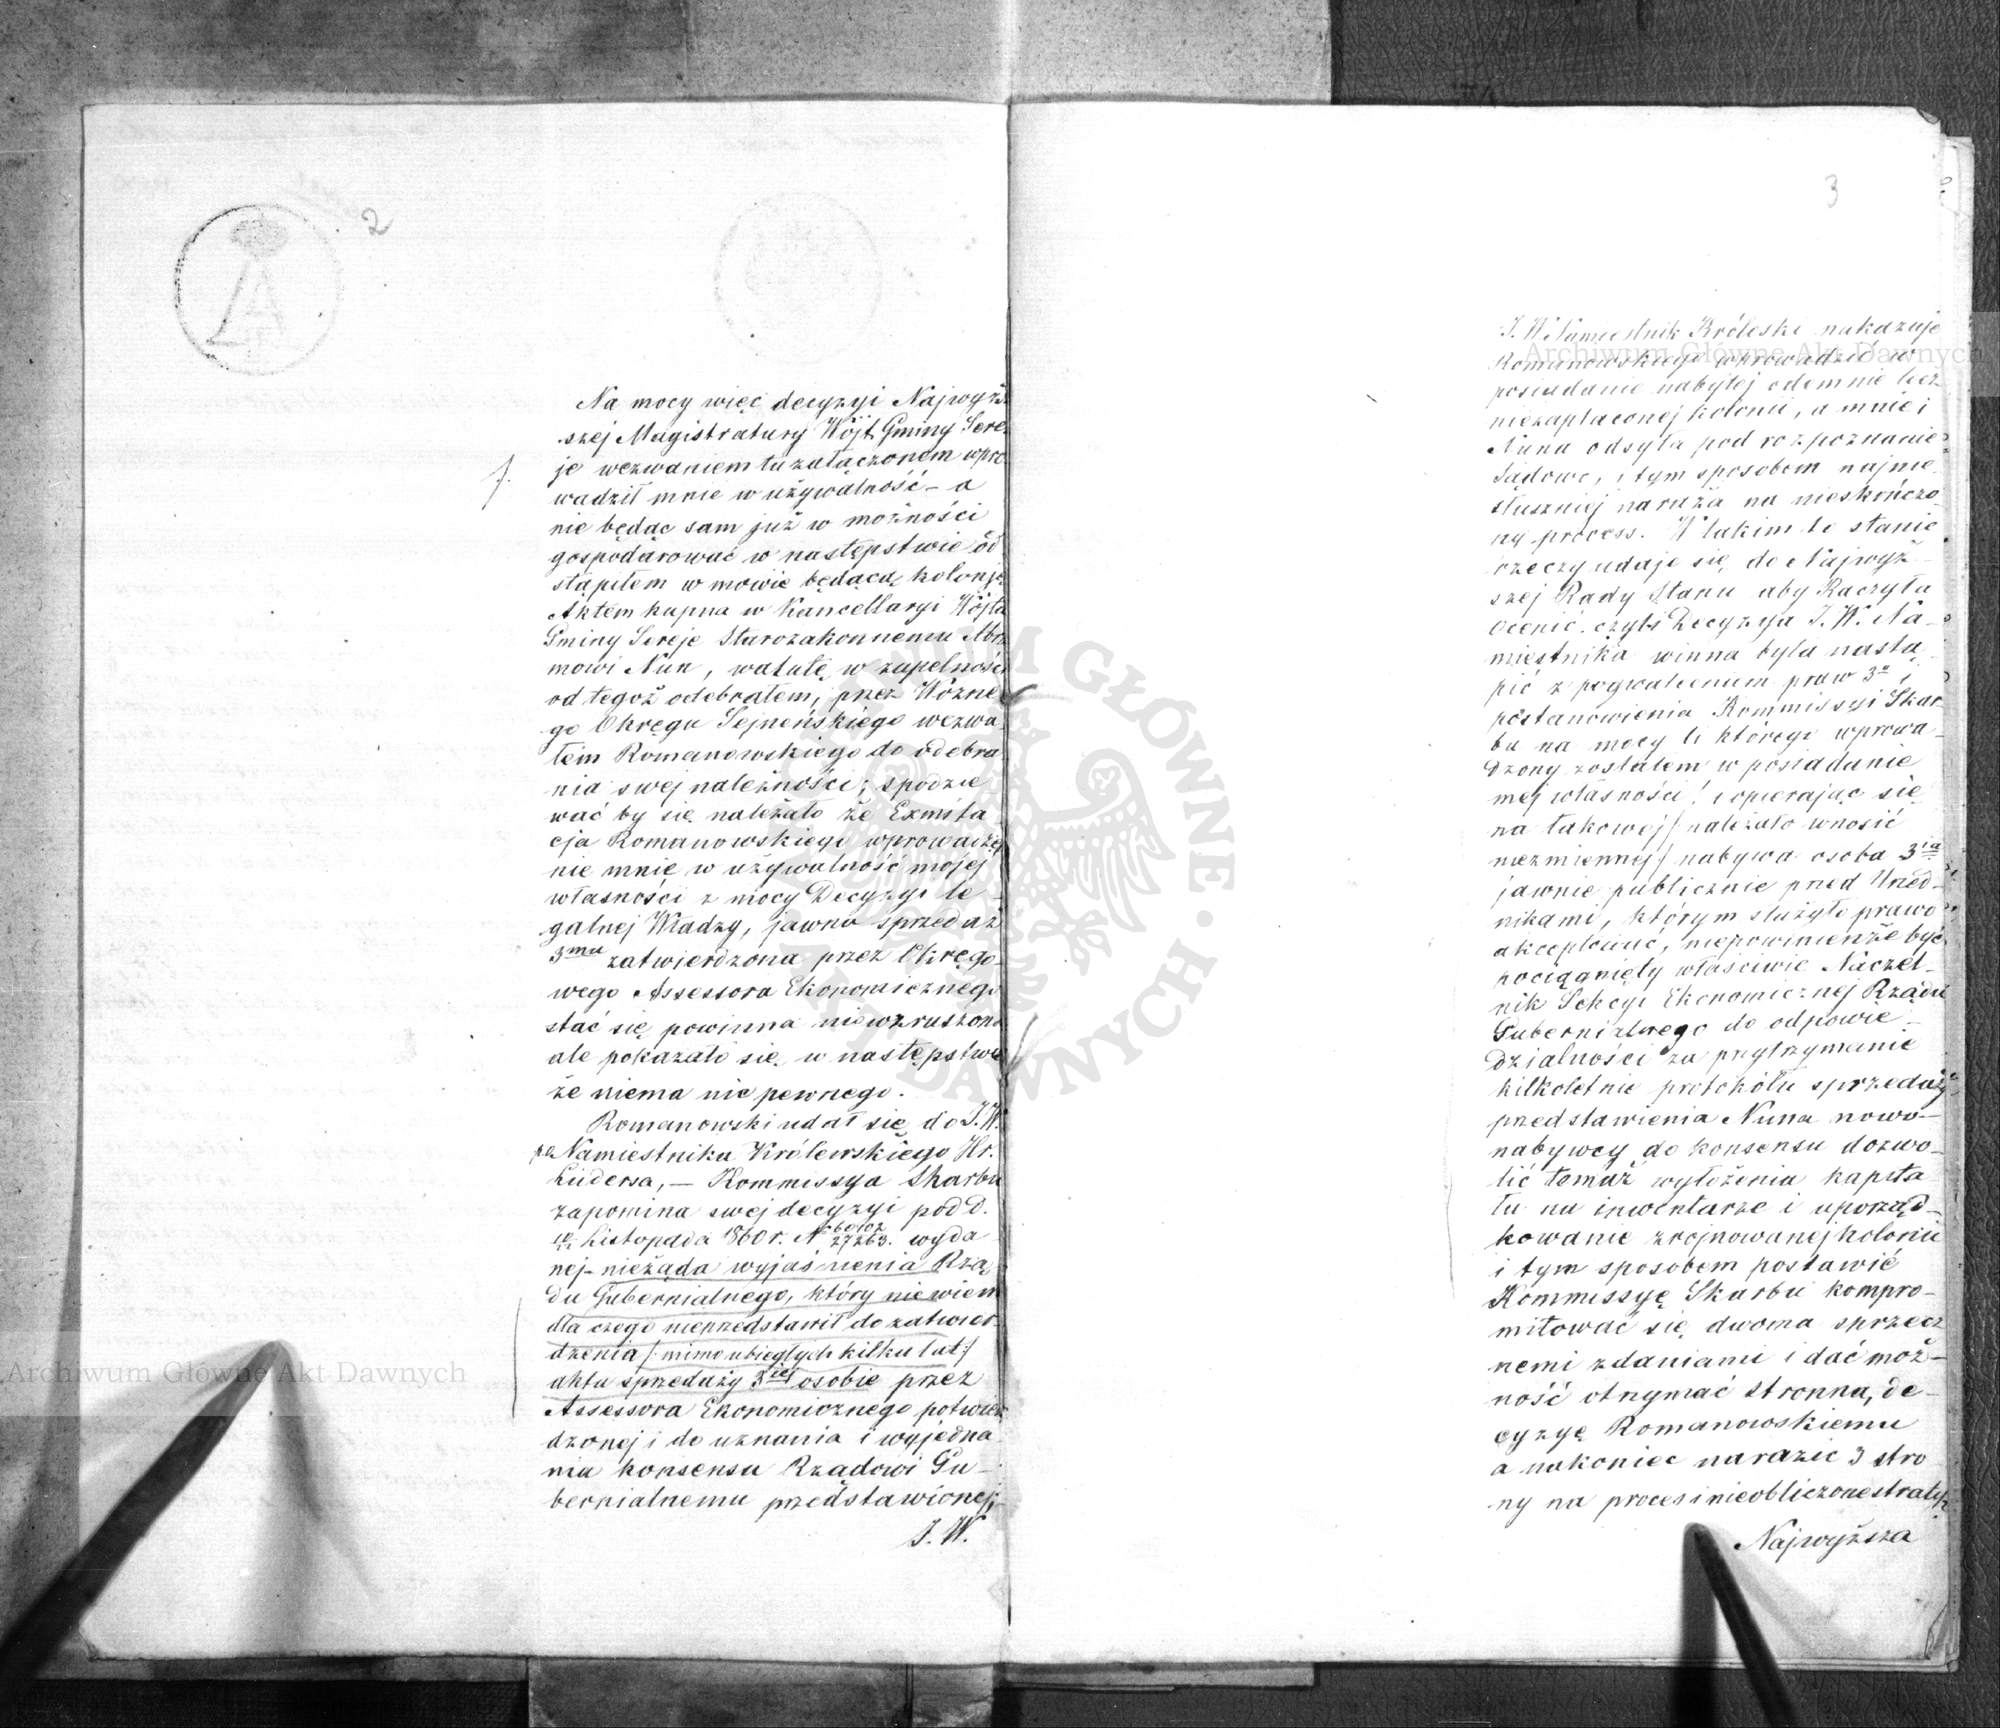 2
Na mocy więc decyzyi Najwyż-
szej Magistratury Wójt Gminy Sere-
je wezwaniem tu załączonem wpro-
wadził mnie w używalność – a
nie będąc sam już w możności
gospodarować w następstwie od
stąpiłem w mowie będącą kolonję
Aktem kupna w Kancellaryi Wójta
Gminy Sereje Starozakonnemu Abra
mowi Nun, walutę w zupełności
od tegoż odebrałem, przez Woźne
go Okręgu Sejneńskiego wezwa
łem Romanowskiego do odebra
nia swej należności; spodzie
wać by się należało że Exmita
cja Romanowskiego wprowadze
nie mnie w używalność mojej
własności z mocy Decyzyi le-
galnej Władzy, jawna sprzedaż
3mu zatwierdzona przez Okręgo-
wego Assessora Ekonomicznego
stać się powinna niewzruszoną
ale pokazało się w następstwie
że niema nic pewnego.
Romanowski udał się do J.W.
po Namiestnika Królewskiego Hr.
Lüdersa, – Kommissya Skarbu
zapomina swej decyzyi pod d.
Listopada 1860 r. N 27263. wyda
nej – nieżąda wyjaśnienia Rzą
du Gubernialnego, który nie wiem
dla czego nieprzedstawił do zatwier-
dzenia /: mimo ubiegłych kilku lat :/
aktu sprzedaży 3iej osobie przez
Assessora Ekonomicznego potwier
dzonej i do uznania i wyjedna
nia konsensu Rządowi Gu-
bernialnemu przedstawionej,
J. W.
3
J. W Namiestnik Króleski nakazuje
Romanowskiego wprowadzić w
posiadanie nabytej odemnie lecz
niezapłaconej kolonii, a mnie i
Nuna odsyła pod rozpoznanie
Sądowe, i tym sposobem najnie
słuszniej naraża na nieskończo
ny process. W takim to stanie
rzeczy udaje się do Najwyż-
szej Rady Stanu aby Raczyła
Ocenić. czyli Decyzya J. W. Na-
miestnika winna była nastą
pić z pogwałceniem praw 3o i
postanowienia Kommissyi Skar
bu na mocy to którego wprowa-
dzony zostałem w posiadanie
mej własności! i opierając się
na takowej / należało wnosić
niezmiennej / nabywa osoba 3cia
jawnie publicznie przed Urzęd-
nikami, którym służyło prawo
akceptować, niepowinienże być
pociągnięty właściwie Naczel-
nik Sekcyi Ekonomicznej Rządu
Gubernialnego do odpowie-
dzialności za przytrzymanie
kilkoletnie protokółu sprzedaży
przedstawienia Nuna nowo-
nabywcy do konsensu dozwo-
lić temuż wyłożenia kapita
łu na inwentarze i uporząd-
kowanie zrujnowanej kolonii
i tym sposobem postawić
Kommissyę Skarbu kompro-
mitować się dwoma sprzecz
nemi zdaniami i dać moż-
ność otrzymać stronną, de-
cyzyę Romanowskiemu
a nakoniec narazić 3 stro
ny na proces i nieobliczone straty,
Najwyższa
Archiwum Główne Akt Dawnych
Archiwum Główne Akt Dawnych
ARCHIWUM GŁÓWNE AKT DAWNYCH